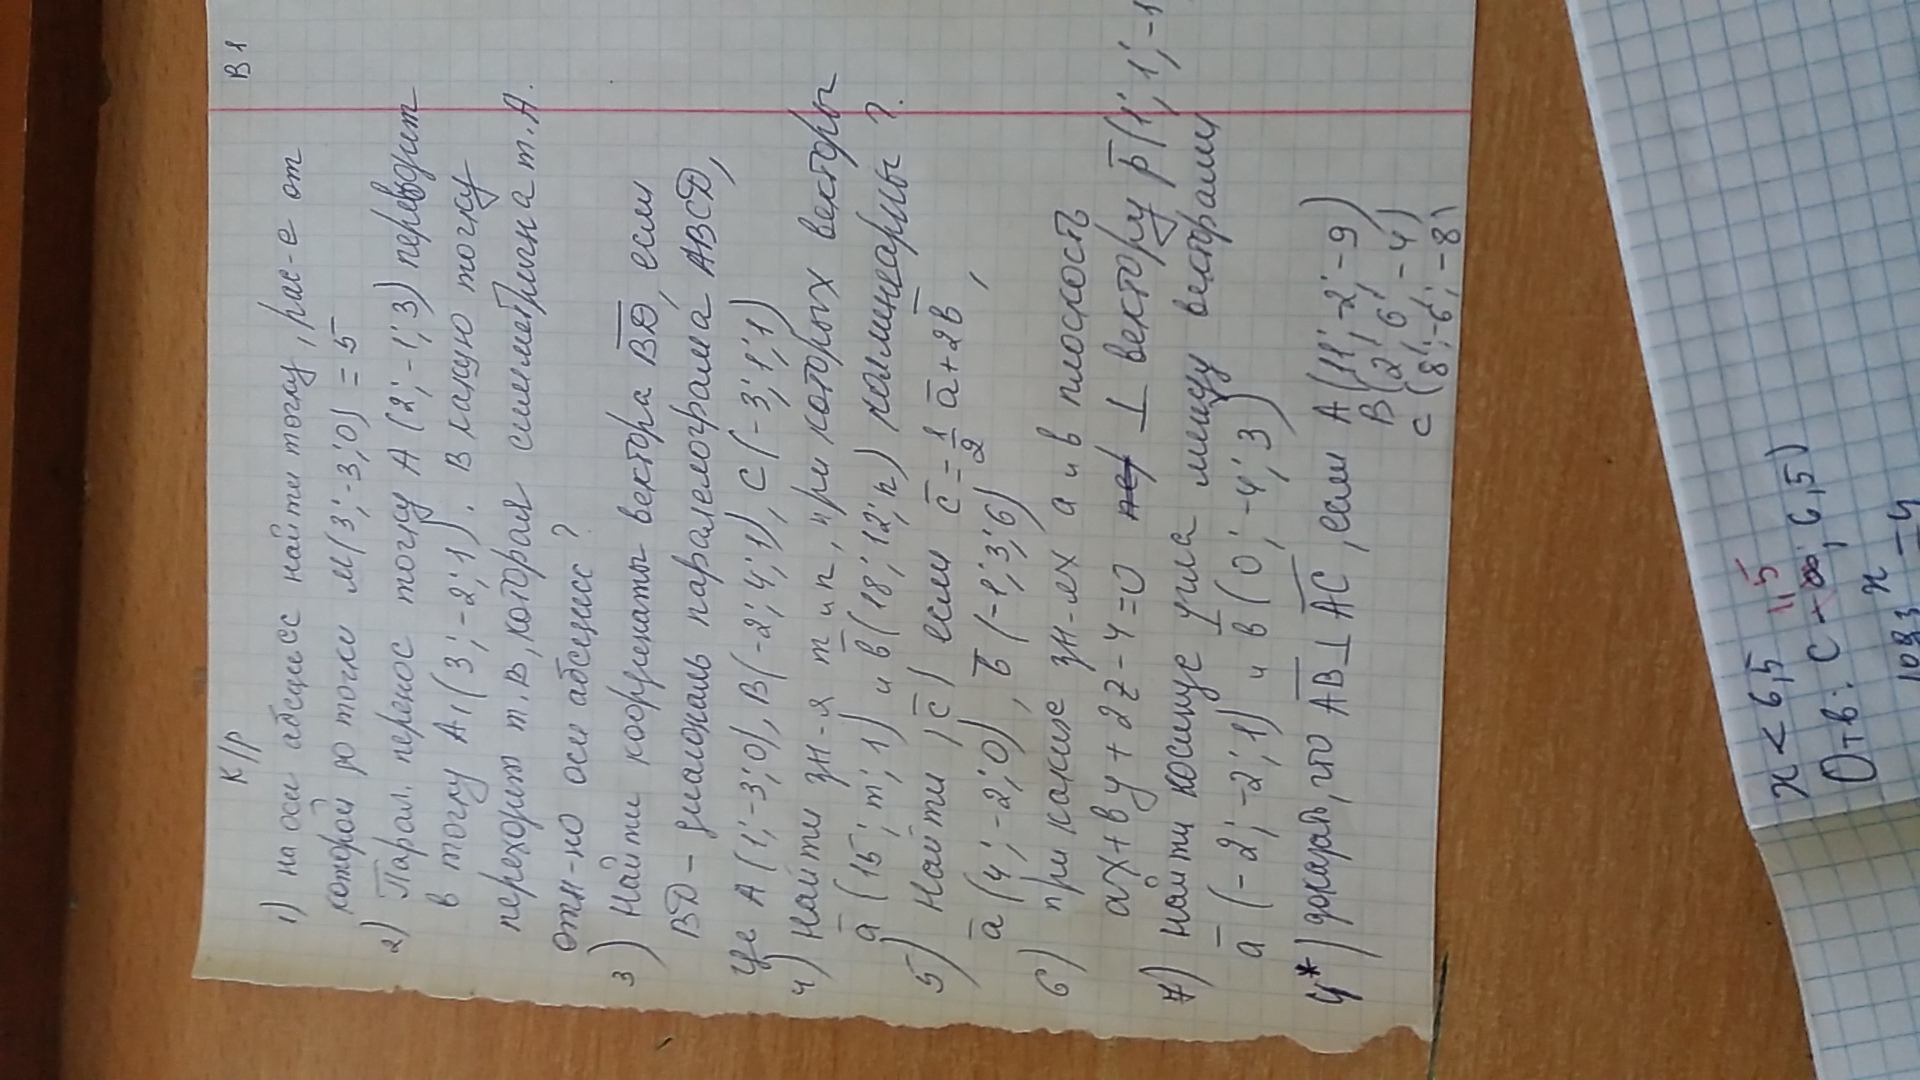 К/р В 1
1) на оси абсцисс найти точку, рас-е от
которой до точки М(3; -3; 0) = 5
2) Парал. перенос точку А (2; -1; 3) переводит
в точку А₁ (3; -2; 1). В какую точку
переходит т. В, которая симметрична т. А.
отн-но оси абсцисс ?
3) Найти координаты вектора BD, если
BD - диагональ паралелограма ABCD,
где А (1; -3; 0), В (-2; 4; 1), С (-3; 1; 1)
4) Найти зн-я m и n, при которых векторы
a (15; m; 1) и в (18; 12; n) коллинеарны ?
5) Найти |c| если c = -1/2 a + 2в,
a (4; -2; 0), в (-1; 3; 6)
6) при каких зн-ях а и в плоскость
ax + вy + 2z - 4 = 0 ⊥ вектору p (1; 1; -1
7) найти косинус угла между векторами
a (-2; -2; 1) и в (0; -4; 3)
4*) доказать, что AB ⊥ AC, если А (11; -2; -9)
В (2; 6; -4)
С (8; -6; -8)
x < 6,5 11,5
Отв: С -∞; 6,5)